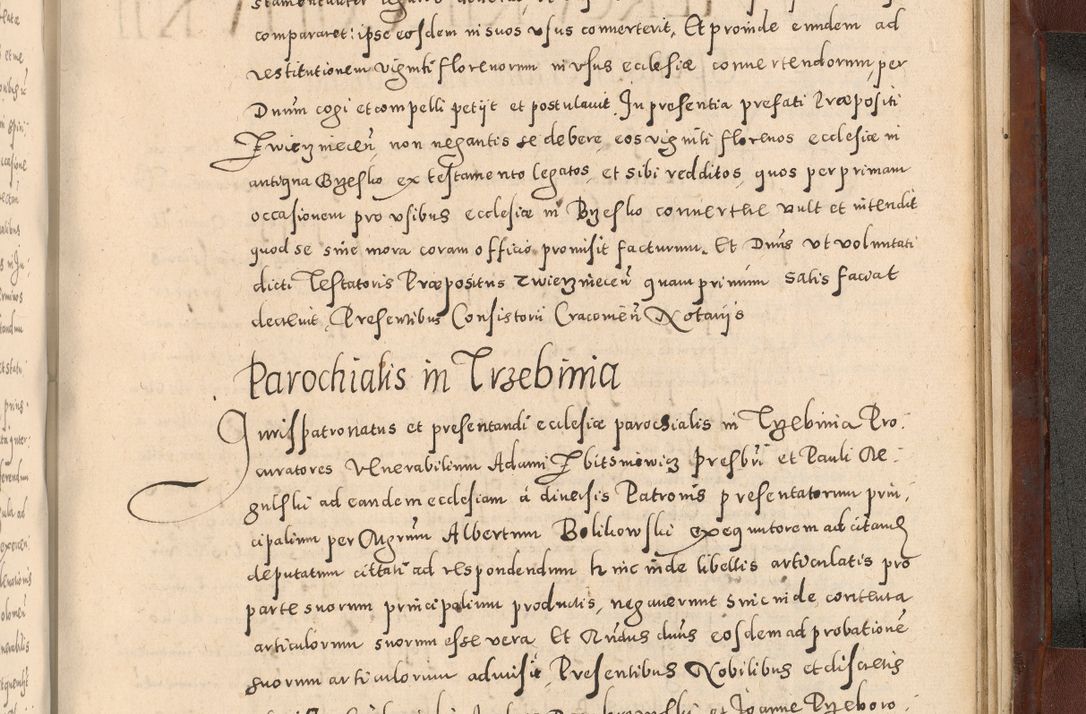 compararet: ipse eosdem in suos usus converterit, Et proinde eundem ad
restitutionem viginti florenorum in usus ecclesiæ convertendorum, per
Dnum cogi et compelli petijt et postulavit In presentia prefati Præpositi
Zwierzinecen, non negantis se debere, eos viginti florenos ecclesiæ in
antiqua Brzesko ex testamento legatos, et sibi redditos, quos per primam
occasionem pro usibus ecclesiæ in Brzesko convertere vult et intendit
quod se sine mora coram officio promisit facturum. Et Dnus ut voluntati
dicti Testatoris Præpositus Zwierzinecen quam primum satis faciat
decrevit, Presentibus Consistorii Cracovien Notarijs
Parochialis in Trzebinia
Juris patronatus et presentandi ecclesiæ parochialis in Trzebinia Pro:
curatores Venerabilium Adami Zbitniowicz Presbri et Pauli Re:
gulski ad eandem ecclesiam à diversis Patronis presentatorum prin:
cipalium per Mgrum Albertum Bolikowski exequutorem ad citand
deputatum citati ad respondendum hinc inde libellis articulatis pro
parte suorum principalium productis, negaverunt hinc inde contenta
articulorum suorum esse vera, Et Rndus dnus eosdem ad probatione
suorum articulorum admisit, Presentibus Nobilibus et discretis
et Joanne Przeboro: